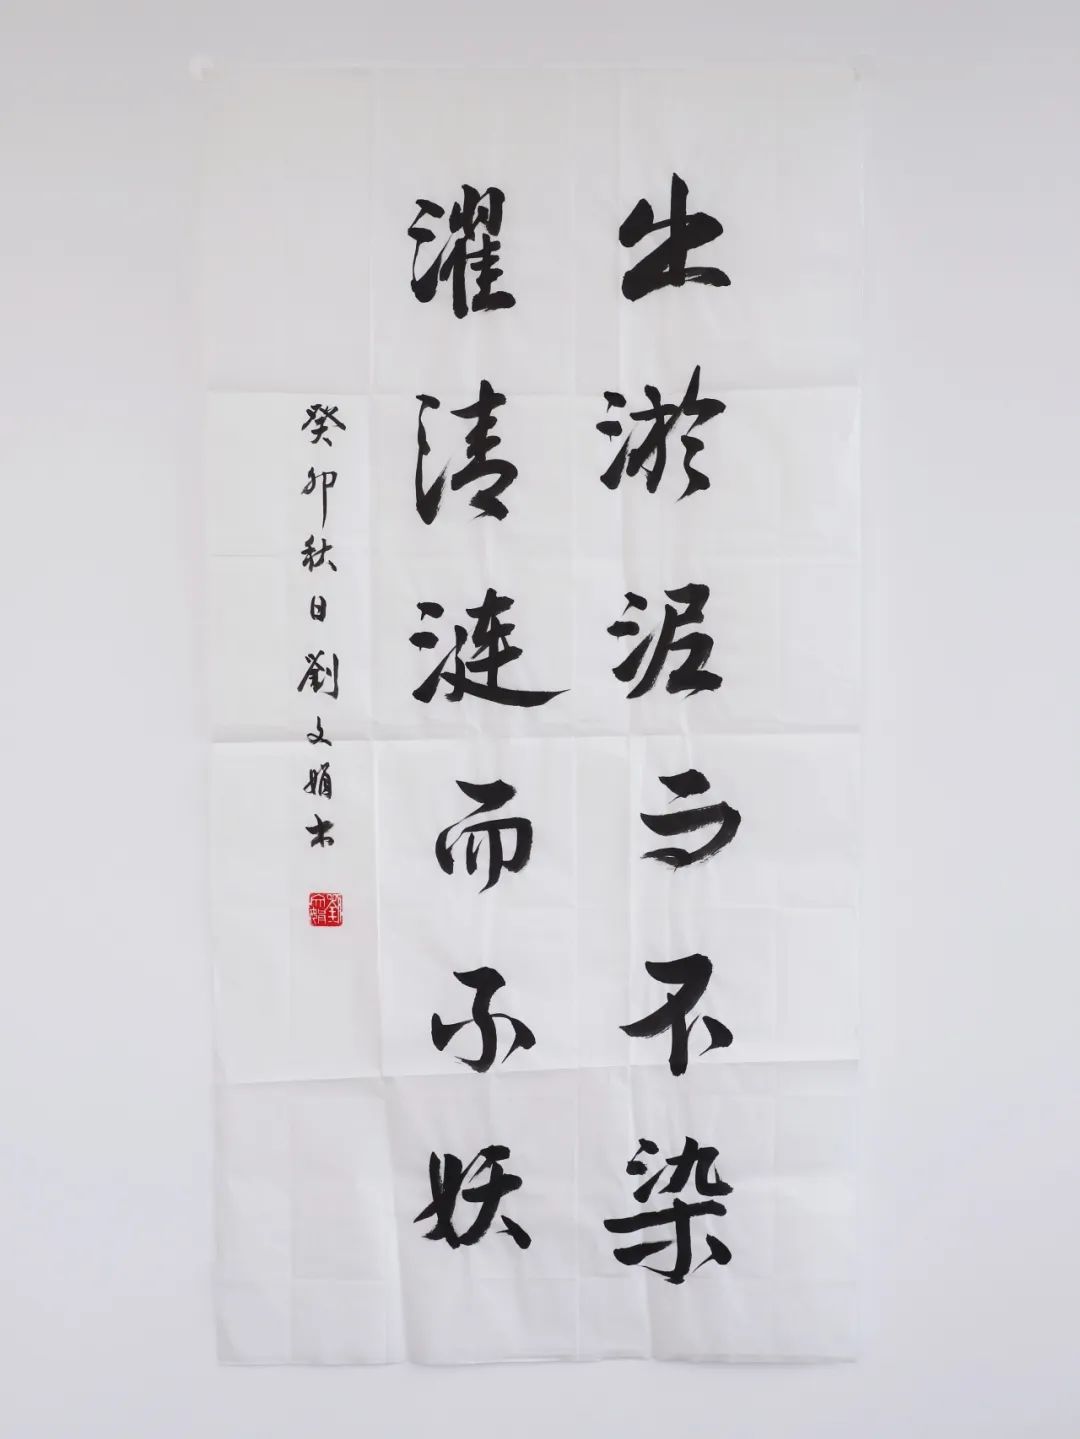 出淤泥而不染
濯清漣而不妖
癸卯秋日劉文娟书
劉文娟